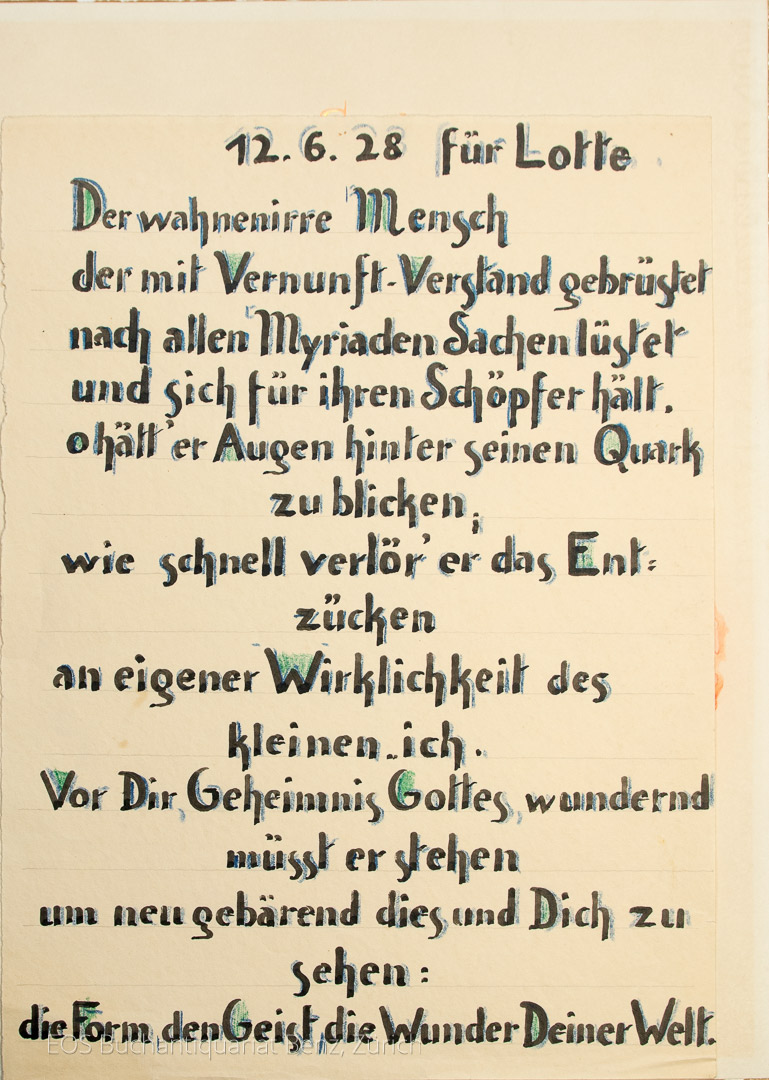 12. 6. 28 für Lotte
Der wahnenirre Mensch
der mit Vernunft-Verstand gebrüstet
nach allen Myriaden Sachen lüstet
und sich für ihren Schöpfer hält.
o hätt' er Augen hinter seinen Quark
zu blicken,
wie schnell verlör' er das Ent=
zücken
an eigener Wirklichkeit des
kleinen „ich.
Vor Dir, Geheimnis Gottes, wundernd
müsst er stehen
um neu gebärend dies und Dich zu
sehen:
die Form, den Geist, die Wunder Deiner Welt.
EOS Buchantiquariat Benz, Zürich